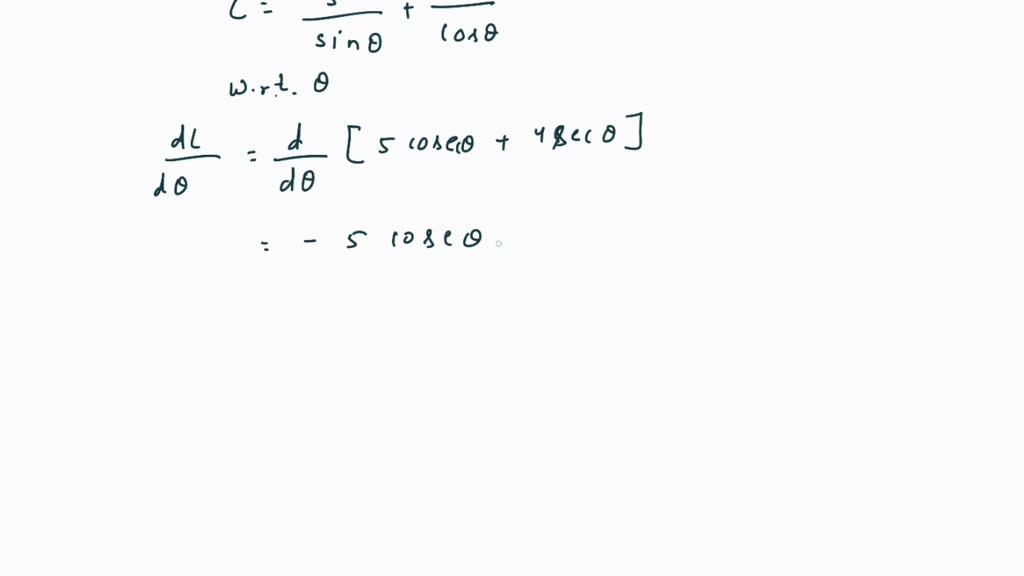 L = 5/sin θ + /cos θ
w.r.t. θ
dL/dθ = d/dθ [ 5 cosec θ + 4 sec θ ]
= - 5 cosec θ